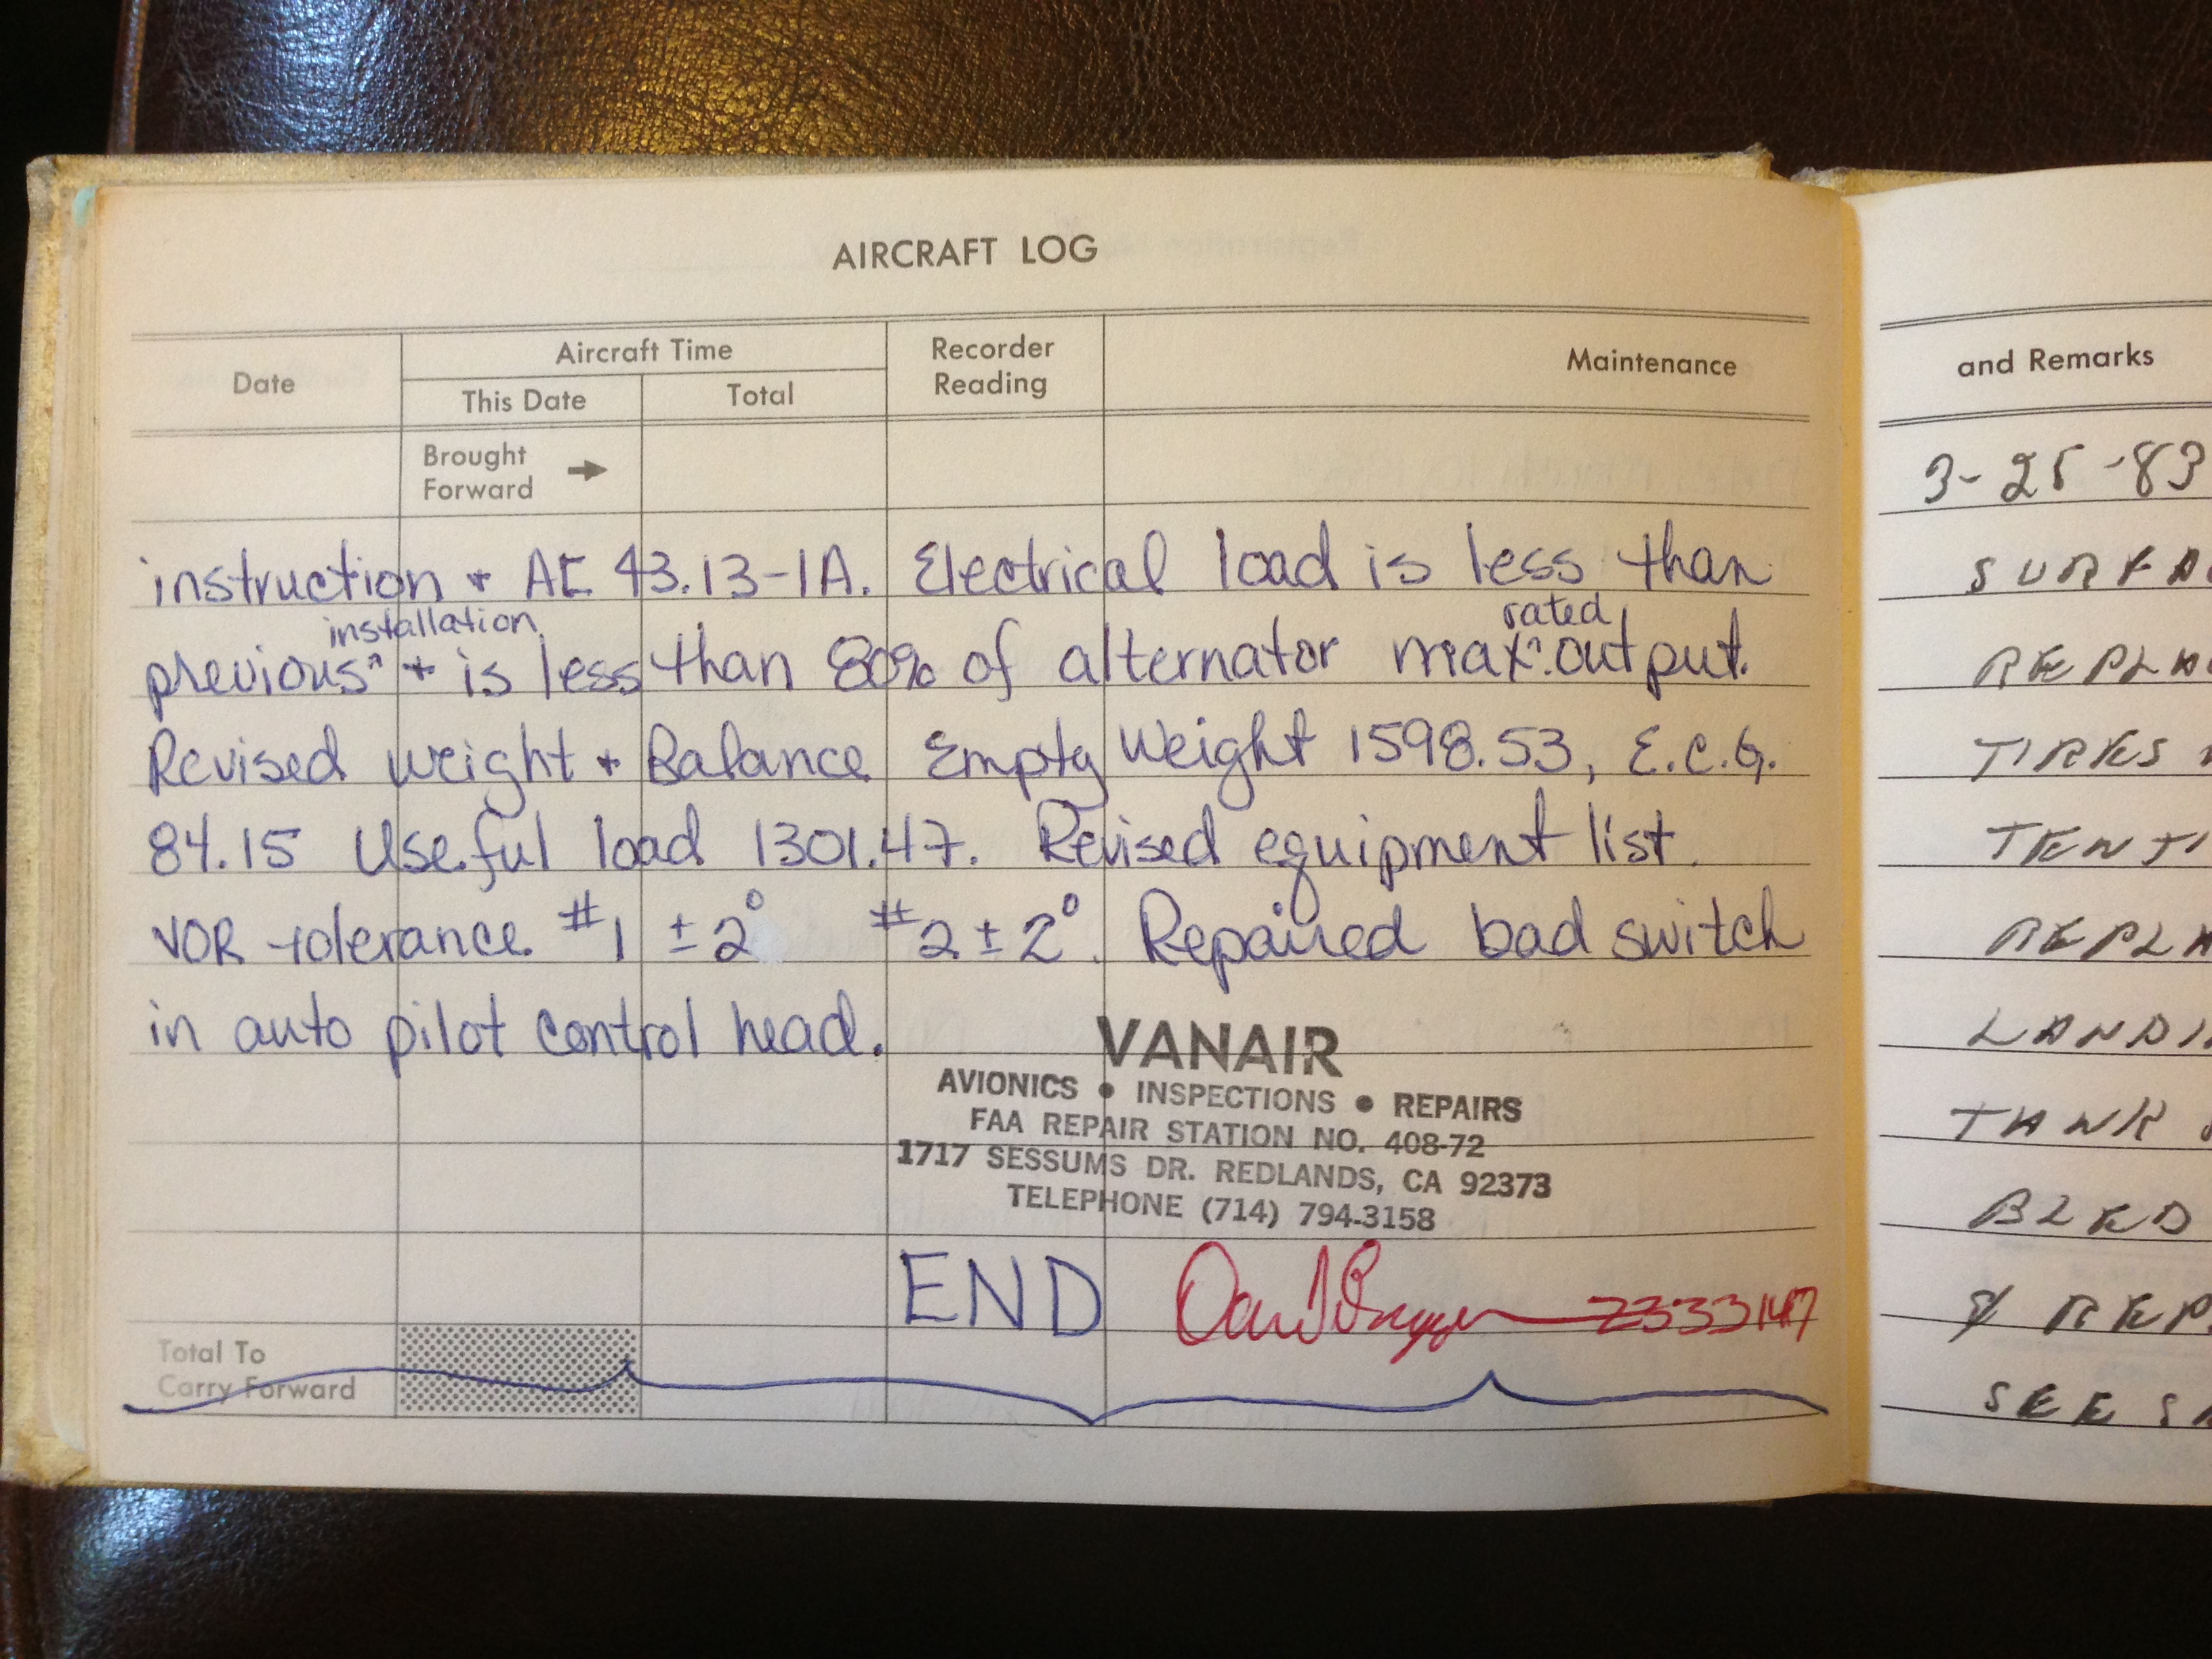 AIRCRAFT LOG
Date
Aircraft Time
This Date
Total
Recorder
Reading
Maintenance
Brought
Forward
instruction + AC 43.13-1A. Electrical load is less than
installation rated
previous^ + is less than 80% of alternator max^. output.
Revised weight + Balance Empty Weight 1598.53, E.C.G.
84.15 Useful load 1301.47. Revised equipment list.
VOR tolerance #1 ±2° #2 ±2°. Repaired bad switch
in auto pilot control head.
VANAIR
AVIONICS • INSPECTIONS • REPAIRS
FAA REPAIR STATION NO. 408-72
1717 SESSUMS DR. REDLANDS, CA 92373
TELEPHONE (714) 794-3158
END 2333147
Total To
Carry Forward
and Remarks
3-25-83
SURFA
REPLA
TIRES
TENTI
REPLA
LANDI
TANK
BLED
& REP
SEE S